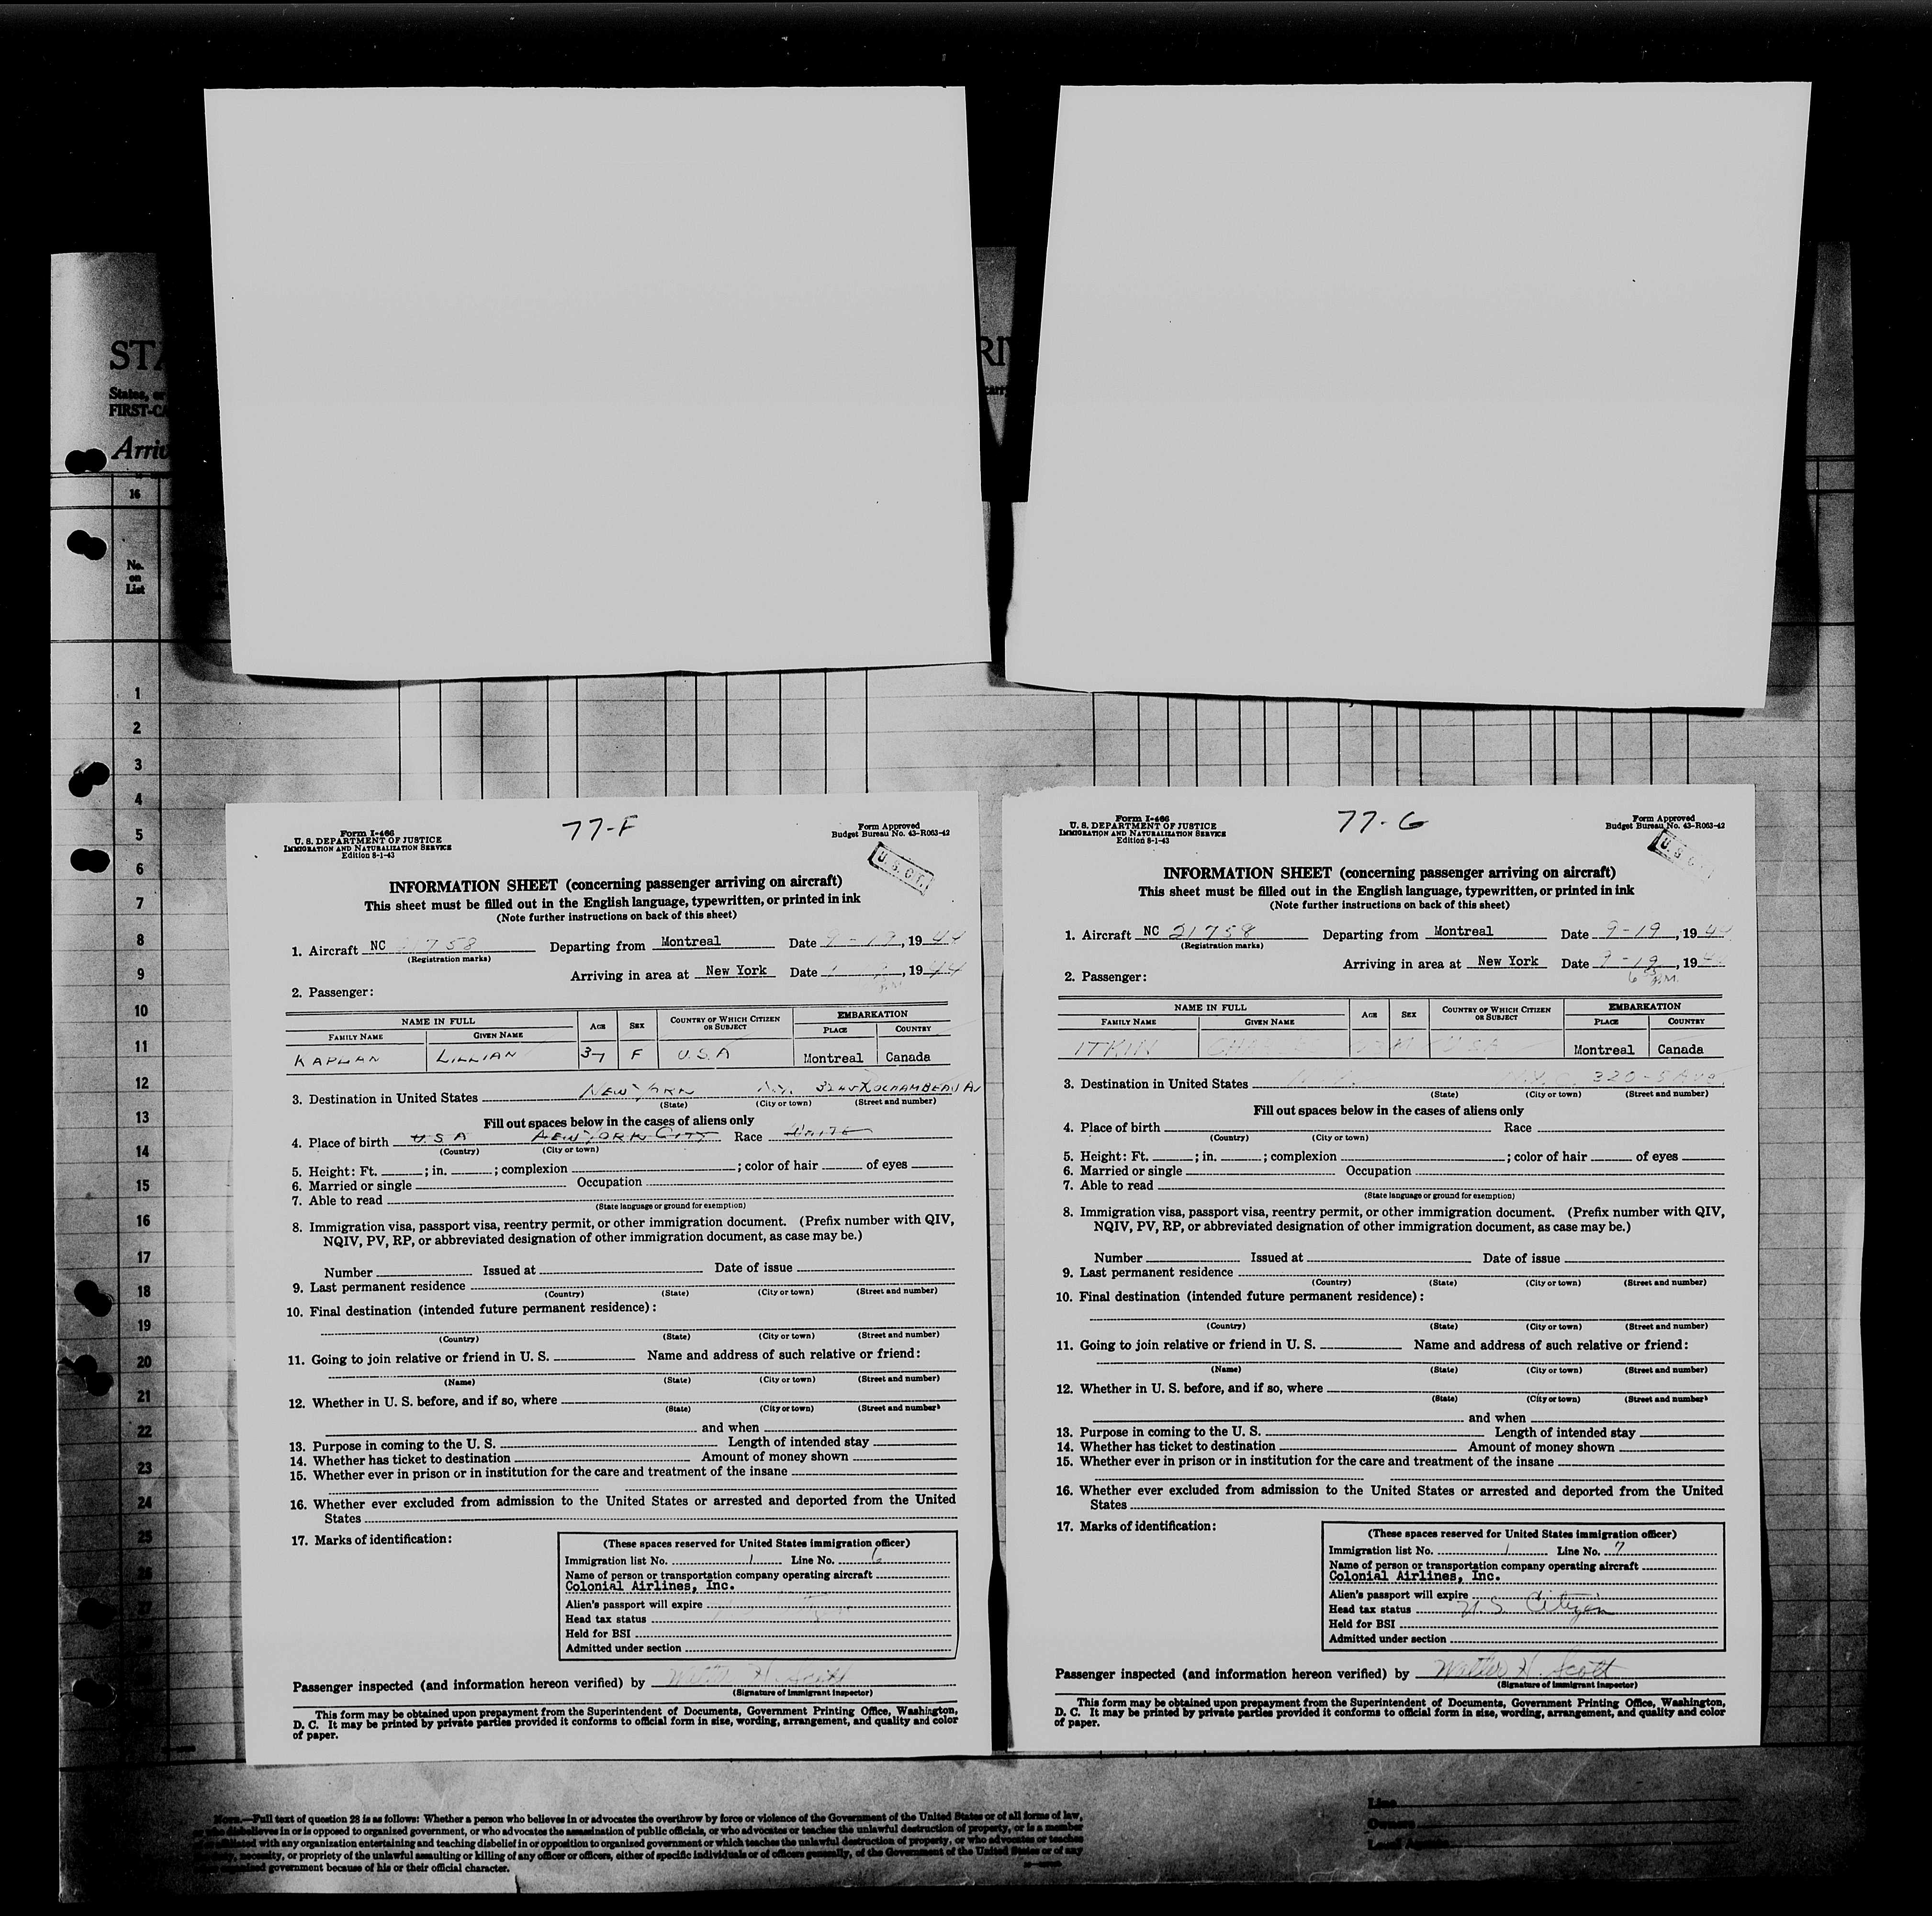 STA
RI
States, or
FIRST-CA
Arriv
16
No.
on
List
1
2
3
4
5
6
7
8
9
10
11
12
13
14
15
16
17
18
19
20
21
22
23
24
25
26
27
77-F
Form I-466
U. S. DEPARTMENT OF JUSTICE
IMMIGRATION AND NATURALIZATION SERVICE
Edition 8-1-43
Form Approved
Budget Bureau No. 43-R063-42
U.S.CIT.
INFORMATION SHEET (concerning passenger arriving on aircraft)
This sheet must be filled out in the English language, typewritten, or printed in ink
(Note further instructions on back of this sheet)
1. Aircraft NC 21758 Departing from Montreal Date 9-19, 1944
(Registration marks)
Arriving in area at New York Date , 1944
2. Passenger:
NAME IN FULL AGE SEX COUNTRY OF WHICH CITIZEN OR SUBJECT EMBARKATION
FAMILY NAME GIVEN NAME PLACE COUNTRY
KAPLAN LILLIAN 37 F U.S.A Montreal Canada
3. Destination in United States NEW YORK N.Y. ROCHAMBEAU AV
(State) (City or town) (Street and number)
Fill out spaces below in the cases of aliens only
4. Place of birth U S A NEW YORK CITY Race WHITE
(Country) (City or town)
5. Height: Ft. ; in. ; complexion ; color of hair of eyes
6. Married or single Occupation
7. Able to read
(State language or ground for exemption)
8. Immigration visa, passport visa, reentry permit, or other immigration document. (Prefix number with QIV,
NQIV, PV, RP, or abbreviated designation of other immigration document, as case may be.)
Number Issued at Date of issue
9. Last permanent residence
(Country) (State) (City or town) (Street and number)
10. Final destination (intended future permanent residence):
(Country) (State) (City or town) (Street and number)
11. Going to join relative or friend in U. S. Name and address of such relative or friend:
(Name) (State) (City or town) (Street and number)
12. Whether in U. S. before, and if so, where
(State) (City or town) (Street and number)
and when
13. Purpose in coming to the U. S. Length of intended stay
14. Whether has ticket to destination Amount of money shown
15. Whether ever in prison or in institution for the care and treatment of the insane
16. Whether ever excluded from admission to the United States or arrested and deported from the United
States
17. Marks of identification:
(These spaces reserved for United States immigration officer)
Immigration list No. 1 Line No. 6
Name of person or transportation company operating aircraft
Colonial Airlines, Inc.
Alien's passport will expire
Head tax status
Held for BSI
Admitted under section
Passenger inspected (and information hereon verified) by Walter H. Scott
(Signature of immigrant inspector)
This form may be obtained upon prepayment from the Superintendent of Documents, Government Printing Office, Washington,
D. C. It may be printed by private parties provided it conforms to official form in size, wording, arrangement, and quality and color
of paper.
77-G
Form I-466
U. S. DEPARTMENT OF JUSTICE
IMMIGRATION AND NATURALIZATION SERVICE
Edition 8-1-43
Form Approved
Budget Bureau No. 43-R063-42
U.S.C
INFORMATION SHEET (concerning passenger arriving on aircraft)
This sheet must be filled out in the English language, typewritten, or printed in ink
(Note further instructions on back of this sheet)
1. Aircraft NC 21758 Departing from Montreal Date 9-19, 1944
(Registration marks)
Arriving in area at New York Date 9-19, 19
2. Passenger:
NAME IN FULL AGE SEX COUNTRY OF WHICH CITIZEN OR SUBJECT EMBARKATION
FAMILY NAME GIVEN NAME PLACE COUNTRY
ITKIN M USA Montreal Canada
3. Destination in United States N.Y. N.Y.C. 320-5 Ave.
(State) (City or town) (Street and number)
Fill out spaces below in the cases of aliens only
4. Place of birth Race
(Country) (City or town)
5. Height: Ft. ; in. ; complexion ; color of hair of eyes
6. Married or single Occupation
7. Able to read
(State language or ground for exemption)
8. Immigration visa, passport visa, reentry permit, or other immigration document. (Prefix number with QIV,
NQIV, PV, RP, or abbreviated designation of other immigration document, as case may be.)
Number Issued at Date of issue
9. Last permanent residence
(Country) (State) (City or town) (Street and number)
10. Final destination (intended future permanent residence):
(Country) (State) (City or town) (Street and number)
11. Going to join relative or friend in U. S. Name and address of such relative or friend:
(Name) (State) (City or town) (Street and number)
12. Whether in U. S. before, and if so, where
(State) (City or town) (Street and number)
and when
13. Purpose in coming to the U. S. Length of intended stay
14. Whether has ticket to destination Amount of money shown
15. Whether ever in prison or in institution for the care and treatment of the insane
16. Whether ever excluded from admission to the United States or arrested and deported from the United
States
17. Marks of identification:
(These spaces reserved for United States immigration officer)
Immigration list No. 1 Line No. 7
Name of person or transportation company operating aircraft
Colonial Airlines, Inc.
Alien's passport will expire
Head tax status U.S. Citizen
Held for BSI
Admitted under section
Passenger inspected (and information hereon verified) by Walter H. Scott
(Signature of immigrant inspector)
This form may be obtained upon prepayment from the Superintendent of Documents, Government Printing Office, Washington,
D. C. It may be printed by private parties provided it conforms to official form in size, wording, arrangement, and quality and color
of paper.
NOTE.—Full text of question 28 is as follows: Whether a person who believes in or advocates the overthrow by force or violence of the Government of the United States or of all forms of law,
disbelieves in or is opposed to organized government, or who advocates the assassination of public officials, or who advocates or teaches the unlawful destruction of property, or is a member
with any organization entertaining and teaching disbelief in or opposition to organized government or which teaches the unlawful destruction of property, or who advocates or teaches
necessity, or propriety of the unlawful assaulting or killing of any officer or officers, either of specific individuals or of officers generally, of the Government of the United States or of any
government because of his or their official character.
Line